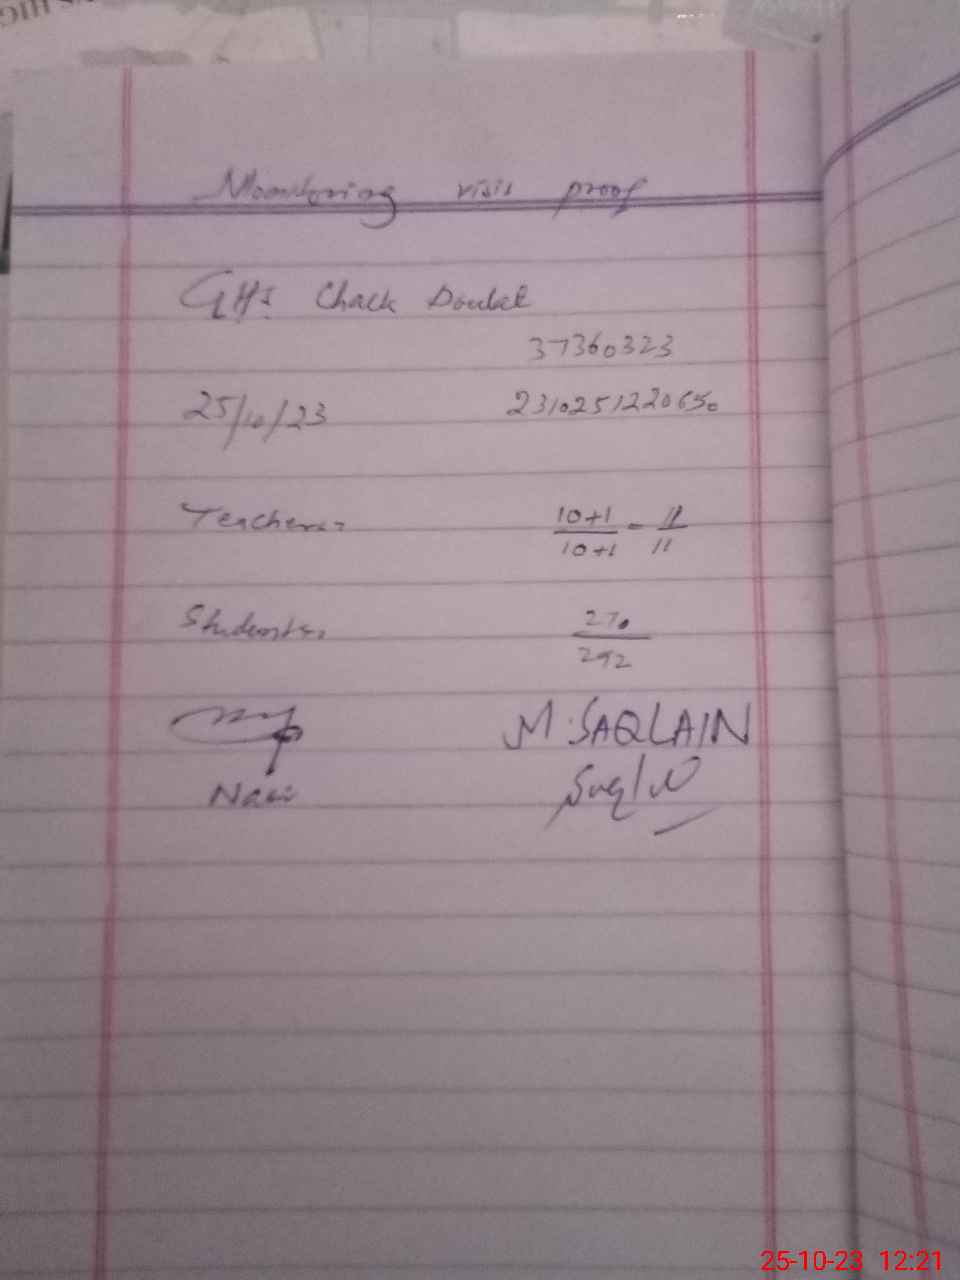 Monitoring visit proof
GHS Chack Doulat
37360323
25/10/23 2310251220650
Teachers:- 10+1/10+1 = 11/11
Students:- 270/292
M. SAQLAIN
25-10-23 12:21